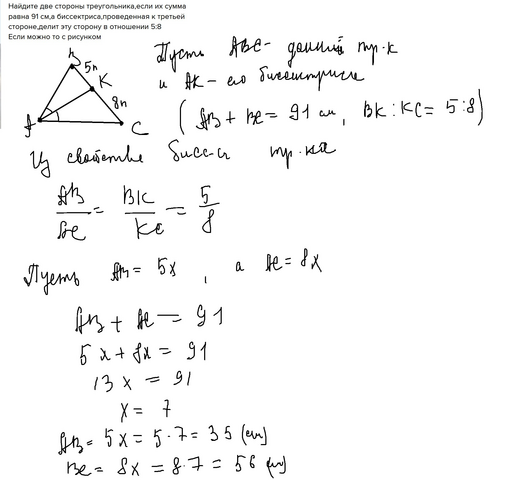 Найдите две стороны треугольника,если их сумма
равна 91 см,а биссектриса,проведенная к третьей
стороне,делит эту сторону в отношении 5:8
Если можно то с рисунком
B
5n
K
8n
A
C
Пусть ABC - данный тр-к
и AK - его биссектриса
(AB + BC = 91 см, BK : KC = 5:8)
Из свойства бисс-сы тр-ка
AB/AC = BK/KC = 5/8
Пусть AB = 5x, а AC = 8x
AB + AC = 91
5x + 8x = 91
13x = 91
x = 7
AB = 5x = 5·7 = 35 (см)
BC = 8x = 8·7 = 56 (см)